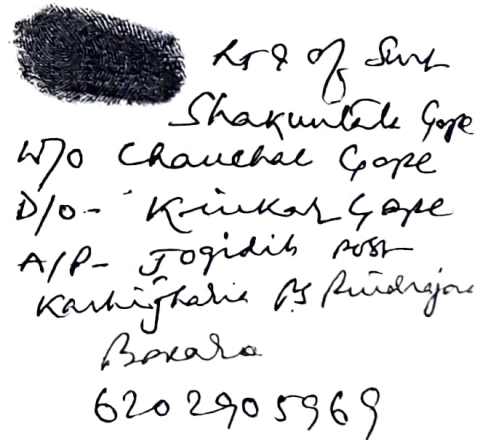 LTI of Smt
Shakuntala Gope
W/o Chanchal Gope
D/o - Kinkar Gope
A/P - Jogidih post
Kashijharia PS Pindrajora
Bokaro
6202905969